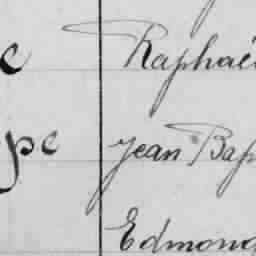 Raphaë
Jean Bap
Edmond